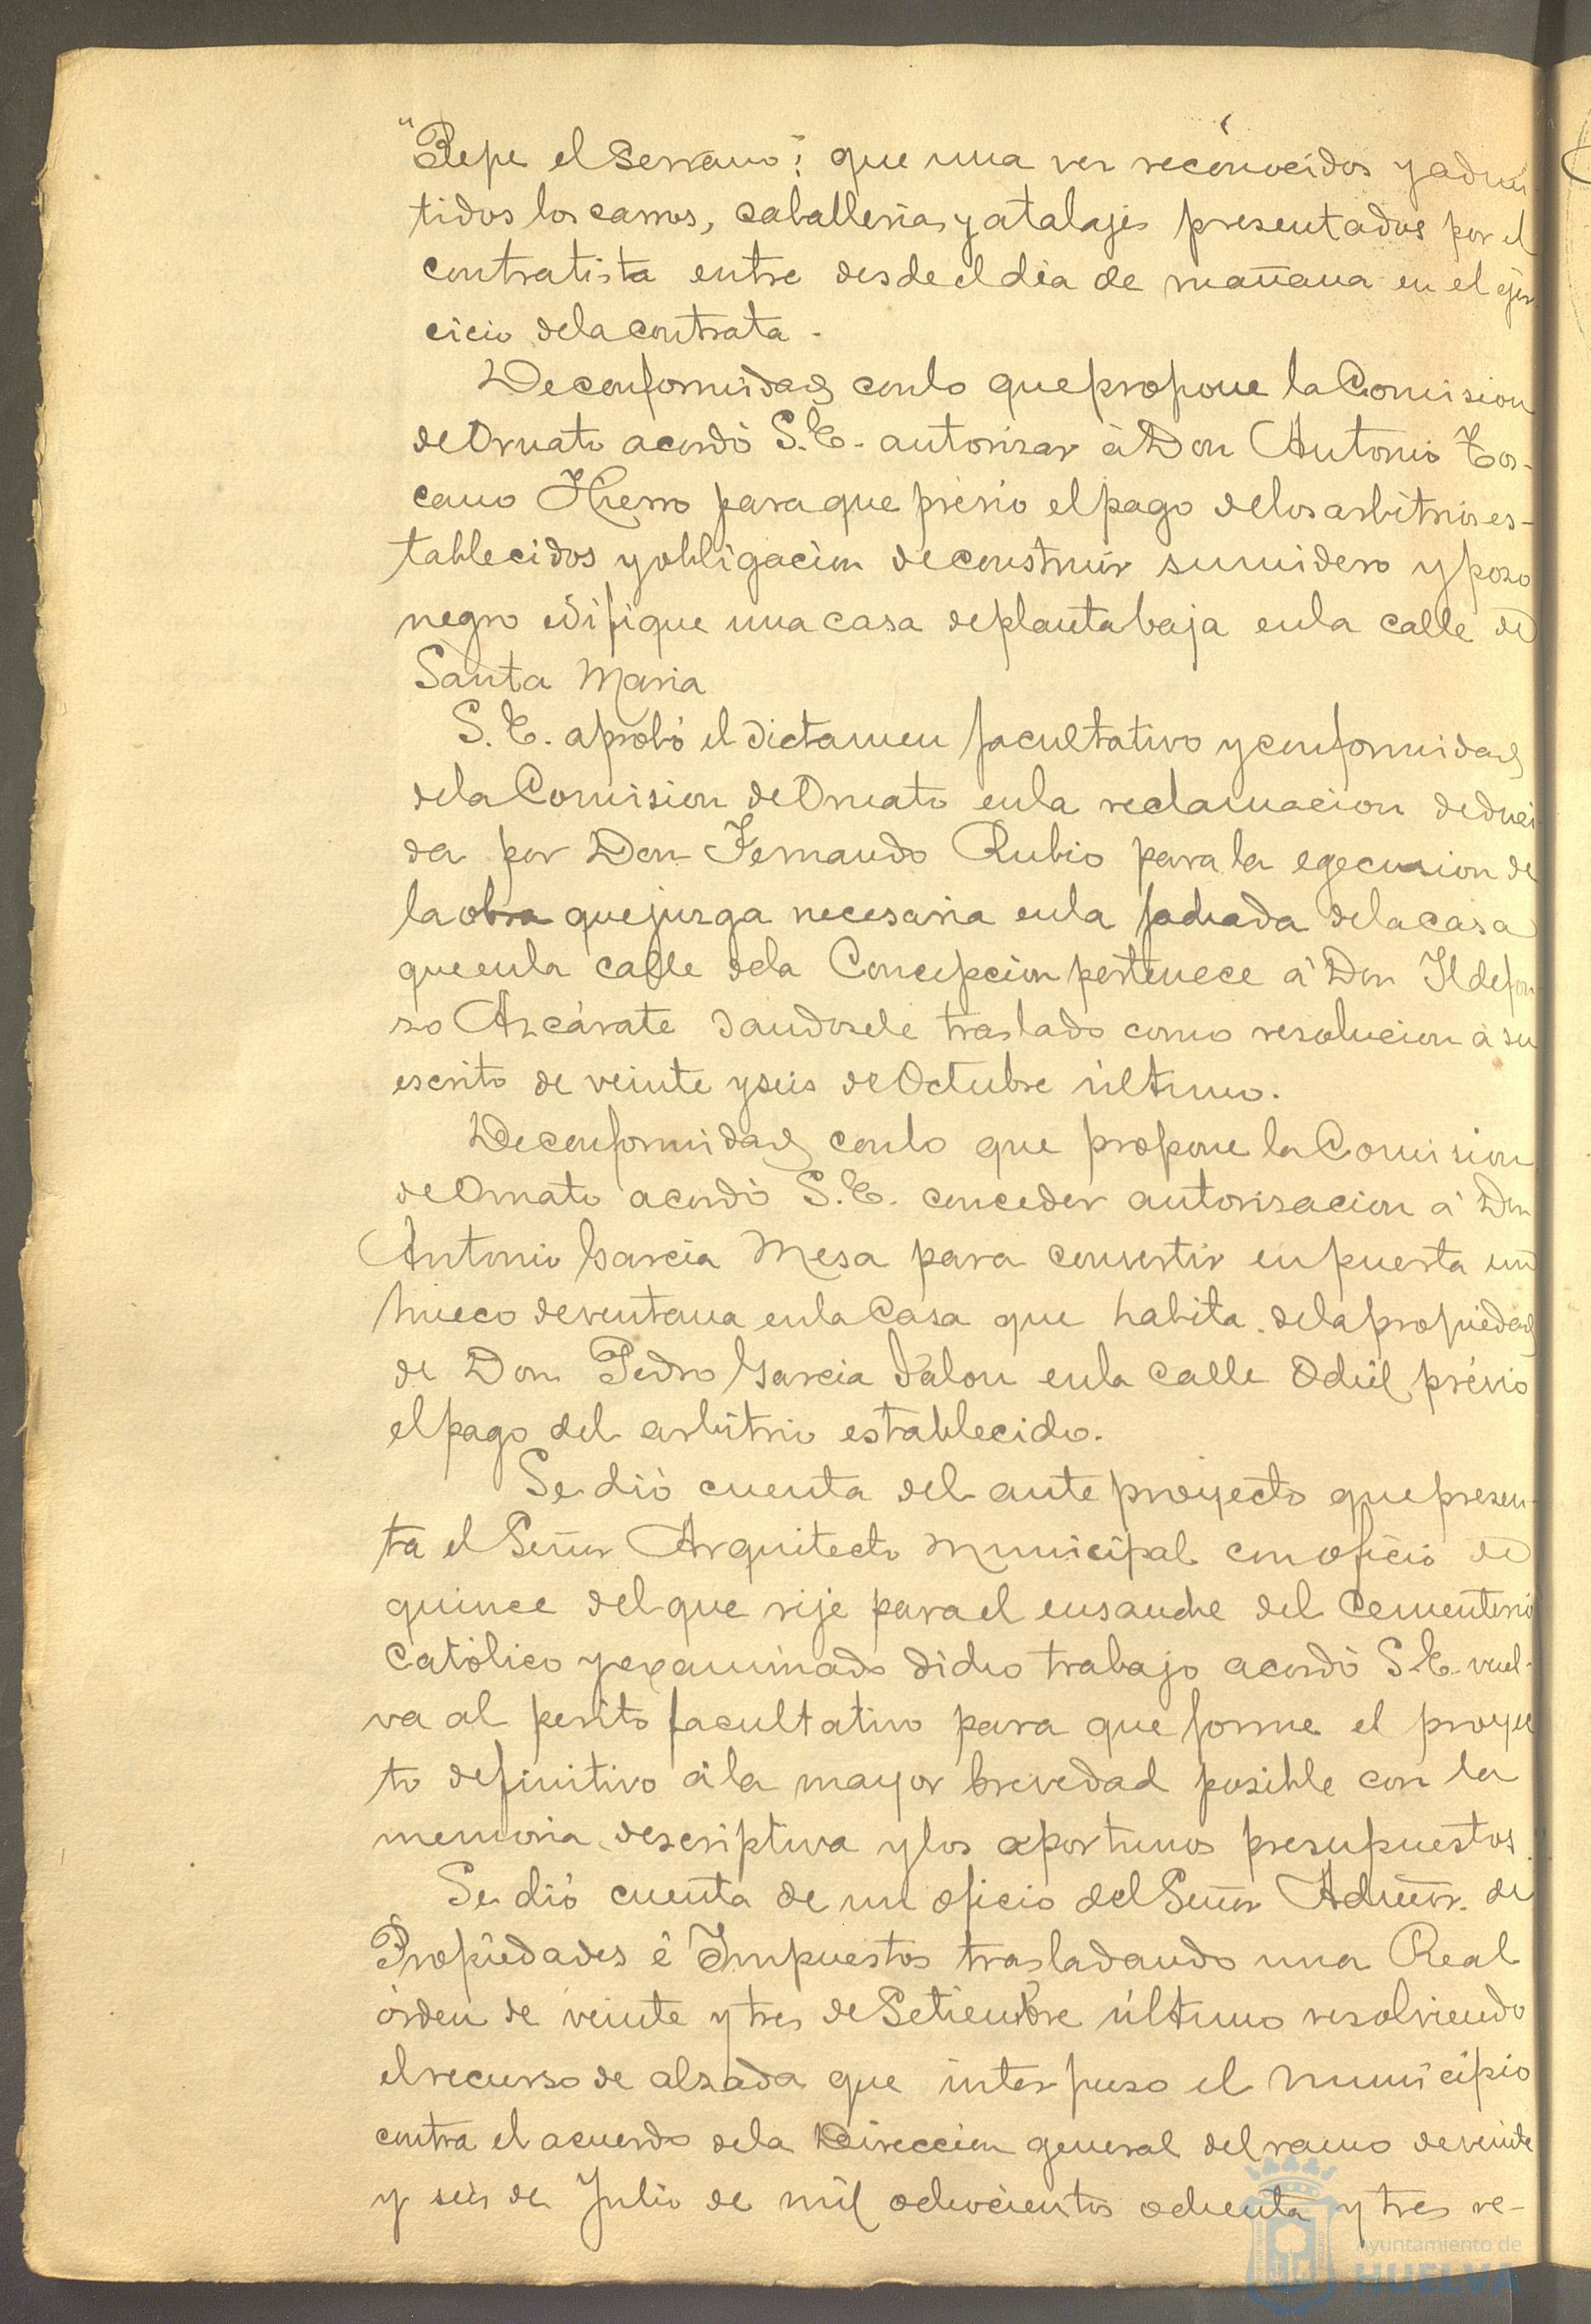 "Pepe el Serrano"; que una vez reconocidos y admi-
tidos los carros, caballerias y atalajes presentados por el
contratista entre desde el dia de mañana en el ejer
cicio de la contrata.
De conformidad con lo que propone la Comision
de Ornato acordó S.E. autorizar á Don Antonio Tos-
cano Hierro para que prévio el pago de los arbitrios es-
tablecidos y obligacion de construir sumidero y pozo
negro edifique una casa de planta baja en la calle de
Santa Maria
S.E. aprobó el dictamen facultativo y conformidad
de la Comision de Ornato en la reclamacion deduci
da por Don Fernando Rubio para la egecucion de
la obra que juzga necesaria en la fachada de la casa
que en la calle de la Concepcion pertenece á Don Ildefon
so Azcárate dandosele traslado como resolucion á su
escrito de veinte y seis de Octubre último.
De conformidad con lo que propone la Comision
de Ornato acordó S.E. conceder autorizacion á Don
Antonio Garcia Mesa para convertir en puerta un
hueco de ventana en la Casa que habita de la propiedad
de Don Pedro Garcia Jalon en la calle Odiel prévio
el pago del arbitrio establecido.
Se dió cuenta del ante proyecto que presen-
ta el Señor Arquitecto Municipal con oficio de
quince del que rije para el ensanche del Cementerio
Católico y examinado dicho trabajo acordó S.E. vuel-
va al perito facultativo para que forme el proyec
to definitivo á la mayor brevedad posible con la
memoria descriptiva y los oportunos presupuestos.
Se dió cuenta de un oficio del Señor Admõr. de
Propiedades é Impuestos trasladando una Real
órden de veinte y tres de Setiembre último resolviendo
el recurso de alzada que interpuso el Municipio
contra el acuerdo de la Direccion general del ramo de veinte
y seis de Julio de mil ochocientos ochenta y tres re-
Ayuntamiento de
HUELVA